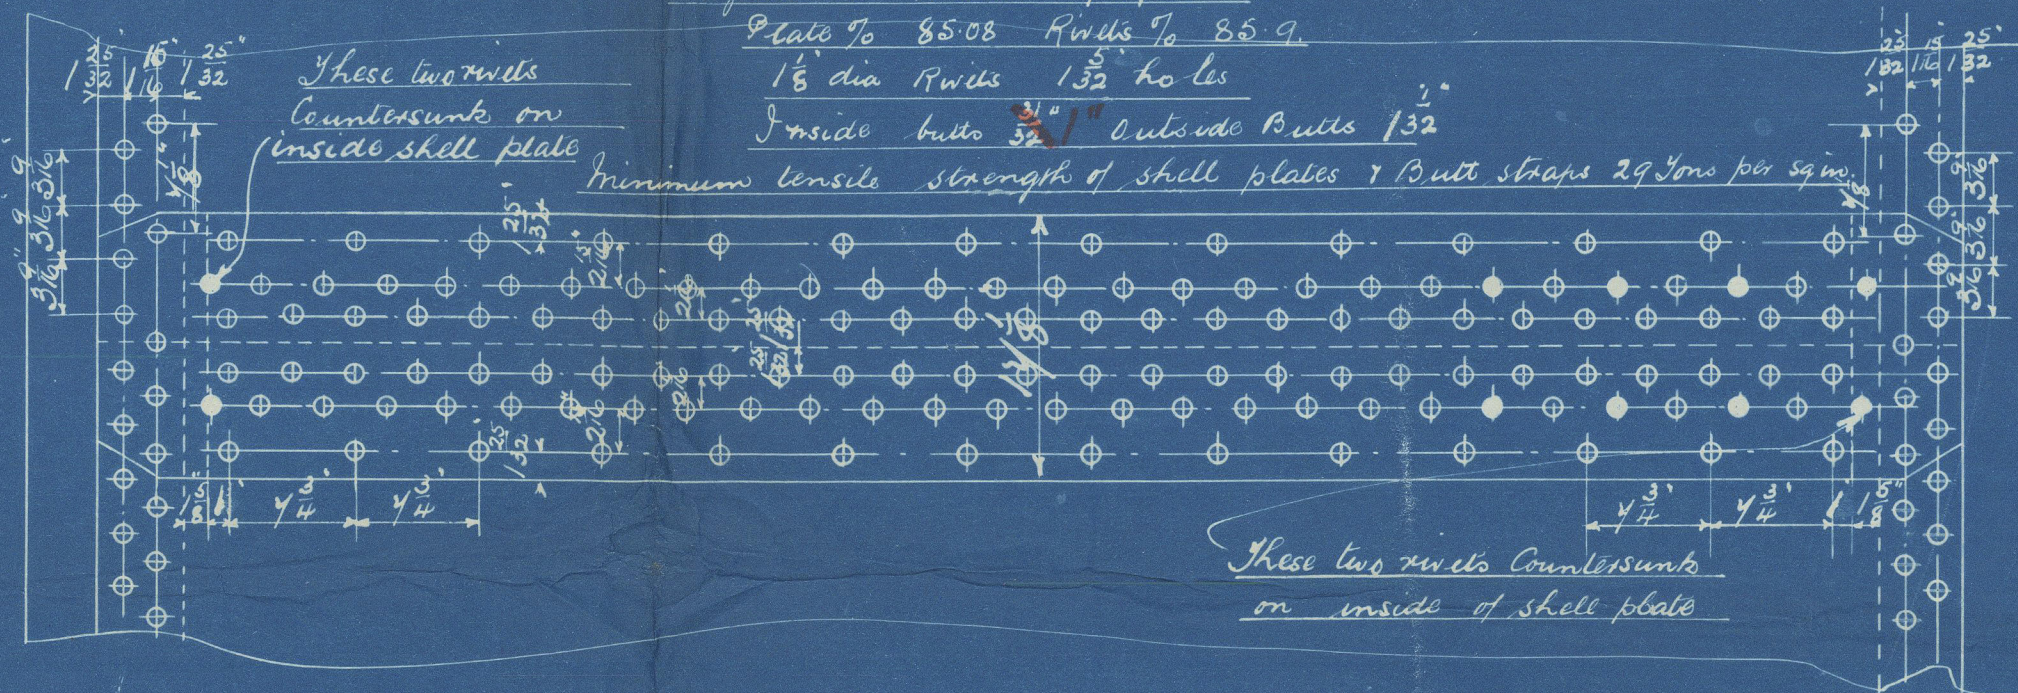 Plate % 85.08 Rivets % 85.9.
1 1/8" dia Rivets 1 5/32" holes
Inside butts 31/32" 1" Outside Butts 1 1/32"
Minimum tensile strength of shell plates & Butt straps 29 Tons per sq in.
1 25/32" 1 15/16" 1 25/32"
These two rivets
Countersunk on
inside shell plate
1 25/32" 1 15/16" 1 25/32"
7 1/8"
3 9/16" 3 9/16" 3 9/16"
1 25/32"
2 15/16"
2 1/16"
1 25/32" 1 25/32"
14 7/8"
2 1/16"
2 15/16"
1 25/32"
7 1/8"
3 9/16" 3 9/16" 3 9/16"
1 5/8" 1" 7 3/4" 7 3/4"
7 3/4" 7 3/4" 1" 1 5/8"
These two rivets Countersunk
on inside of shell plate